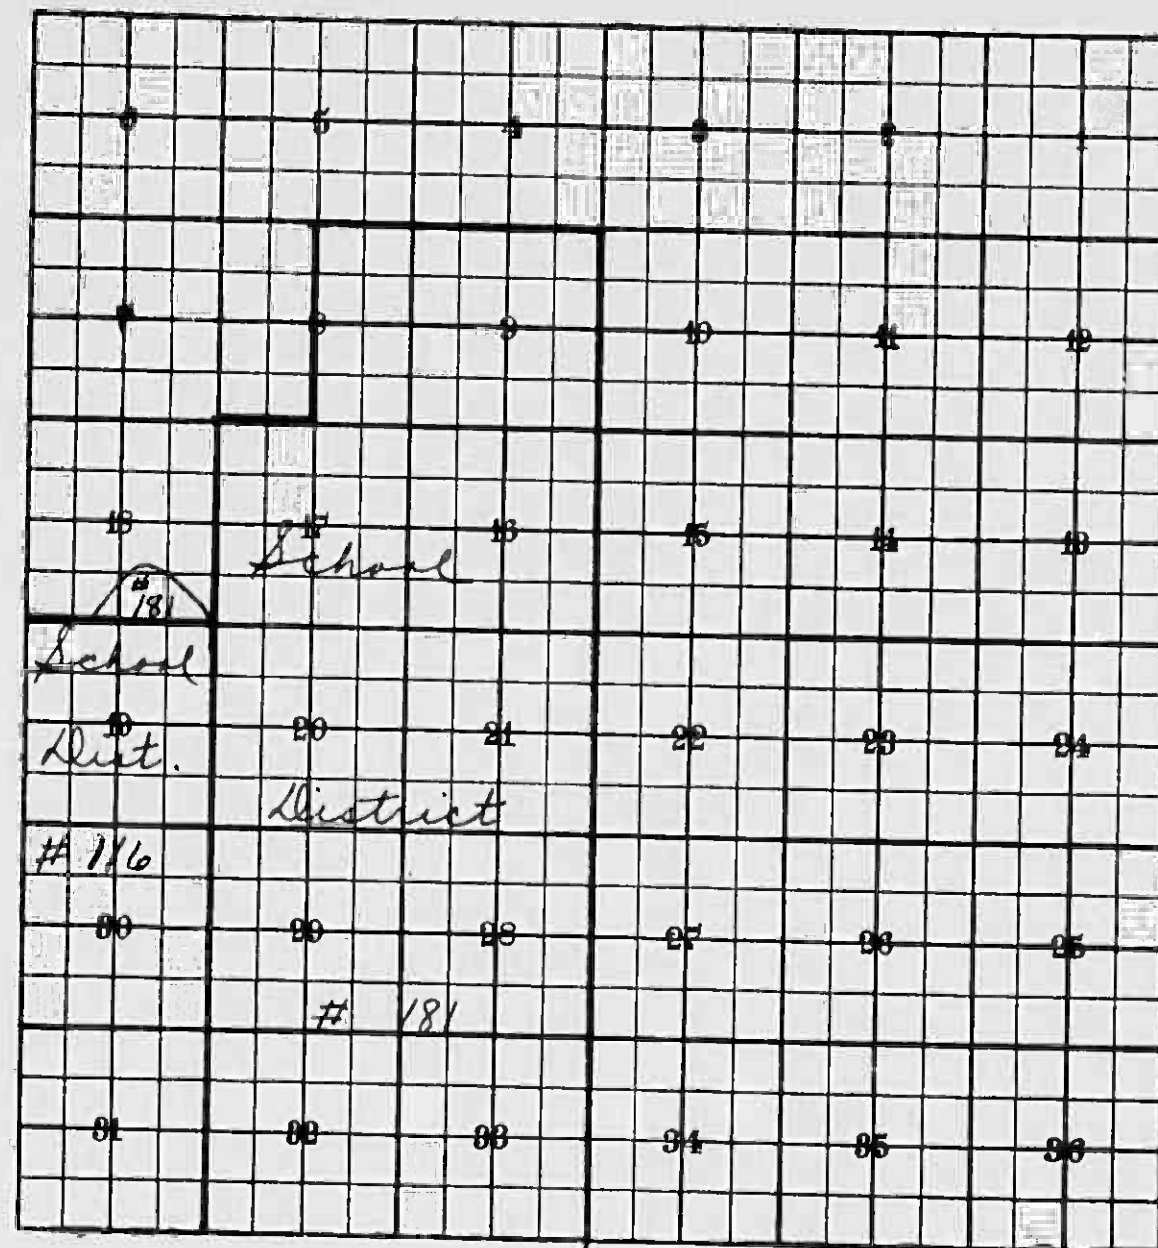 6 5 4 3 2 1
7 8 9 10 11 12
18 17 16 15 14 13
School
#
181
School
19 20 21 22 23 24
Dist.
District
# 116
30 29 28 27 26 25
# 181
31 32 33 34 35 36